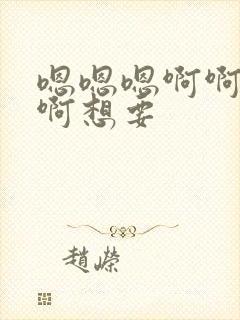 嗯嗯嗯啊啊
啊想要
趙嶸